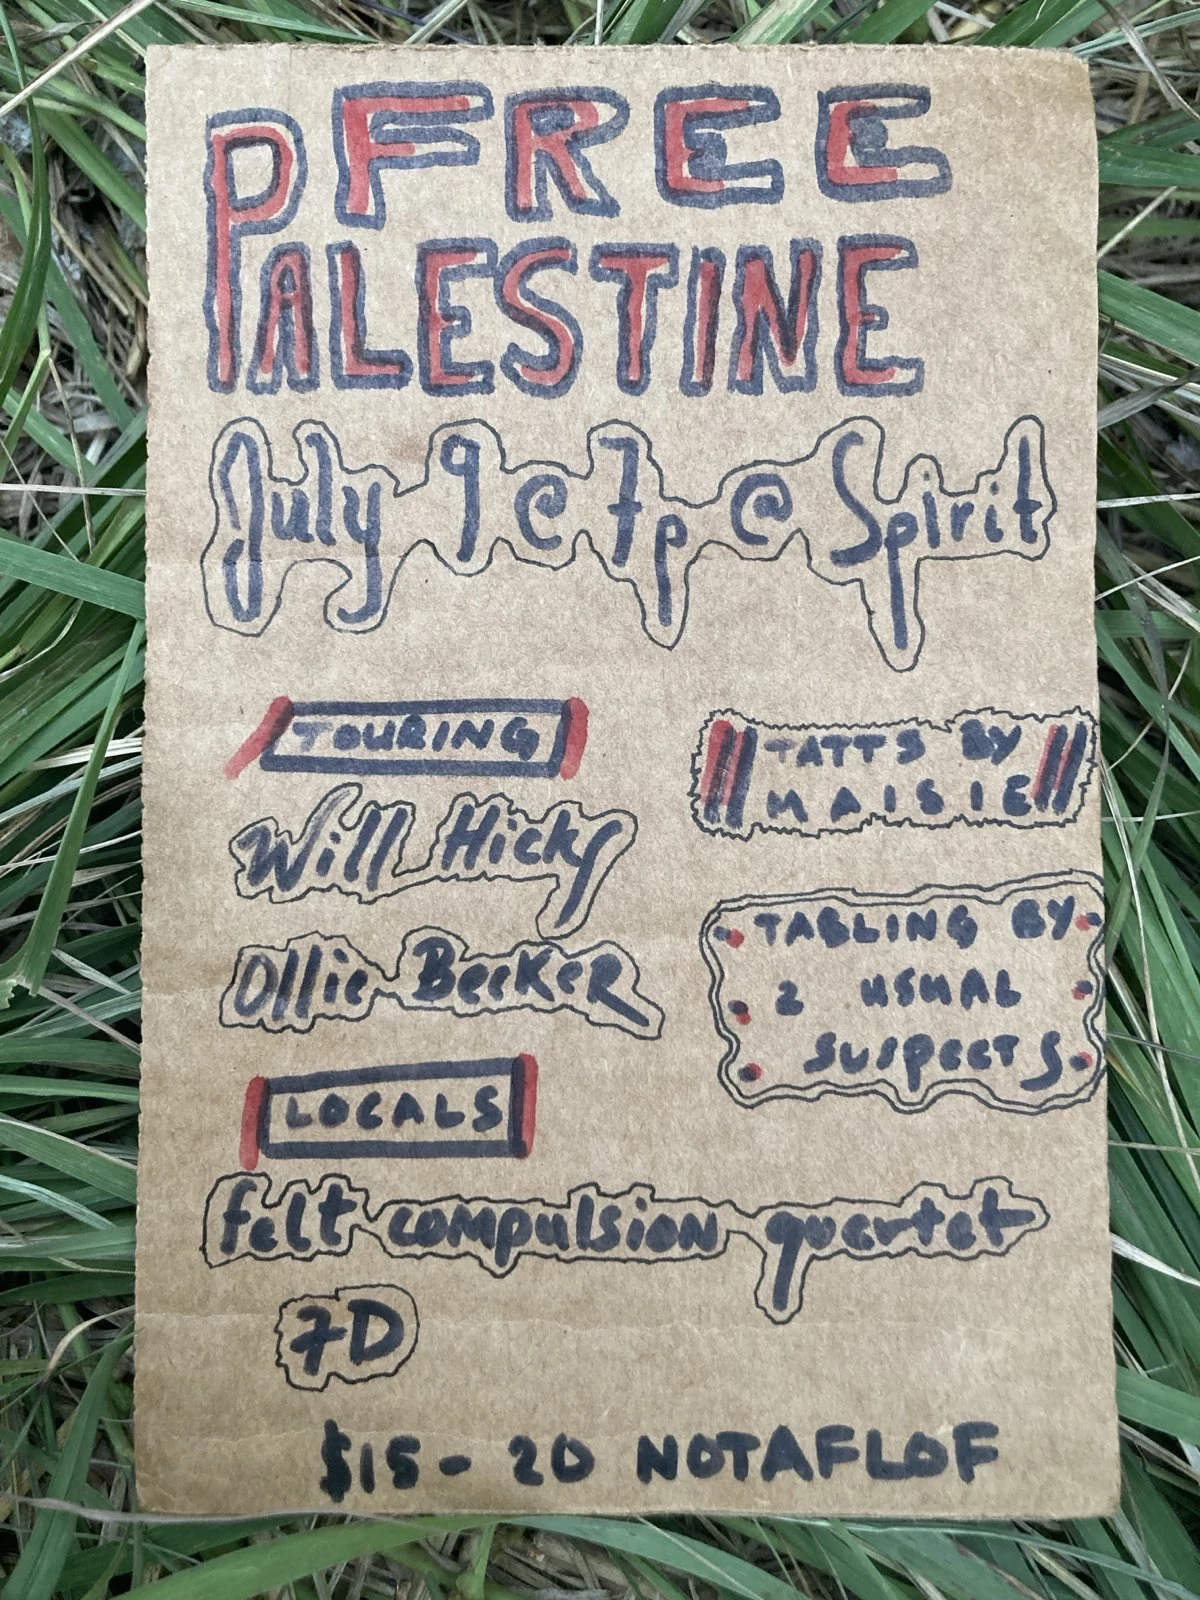 FREE
PALESTINE
July 9 @ 7p @ Spirit
TOURING
Will Hicks
Ollie Becker
TATTS BY
MAISIE
TABLING BY
2 USUAL
SUSPECTS
LOCALS
felt compulsion quartet
7D
$15-20 NOTAFLOF